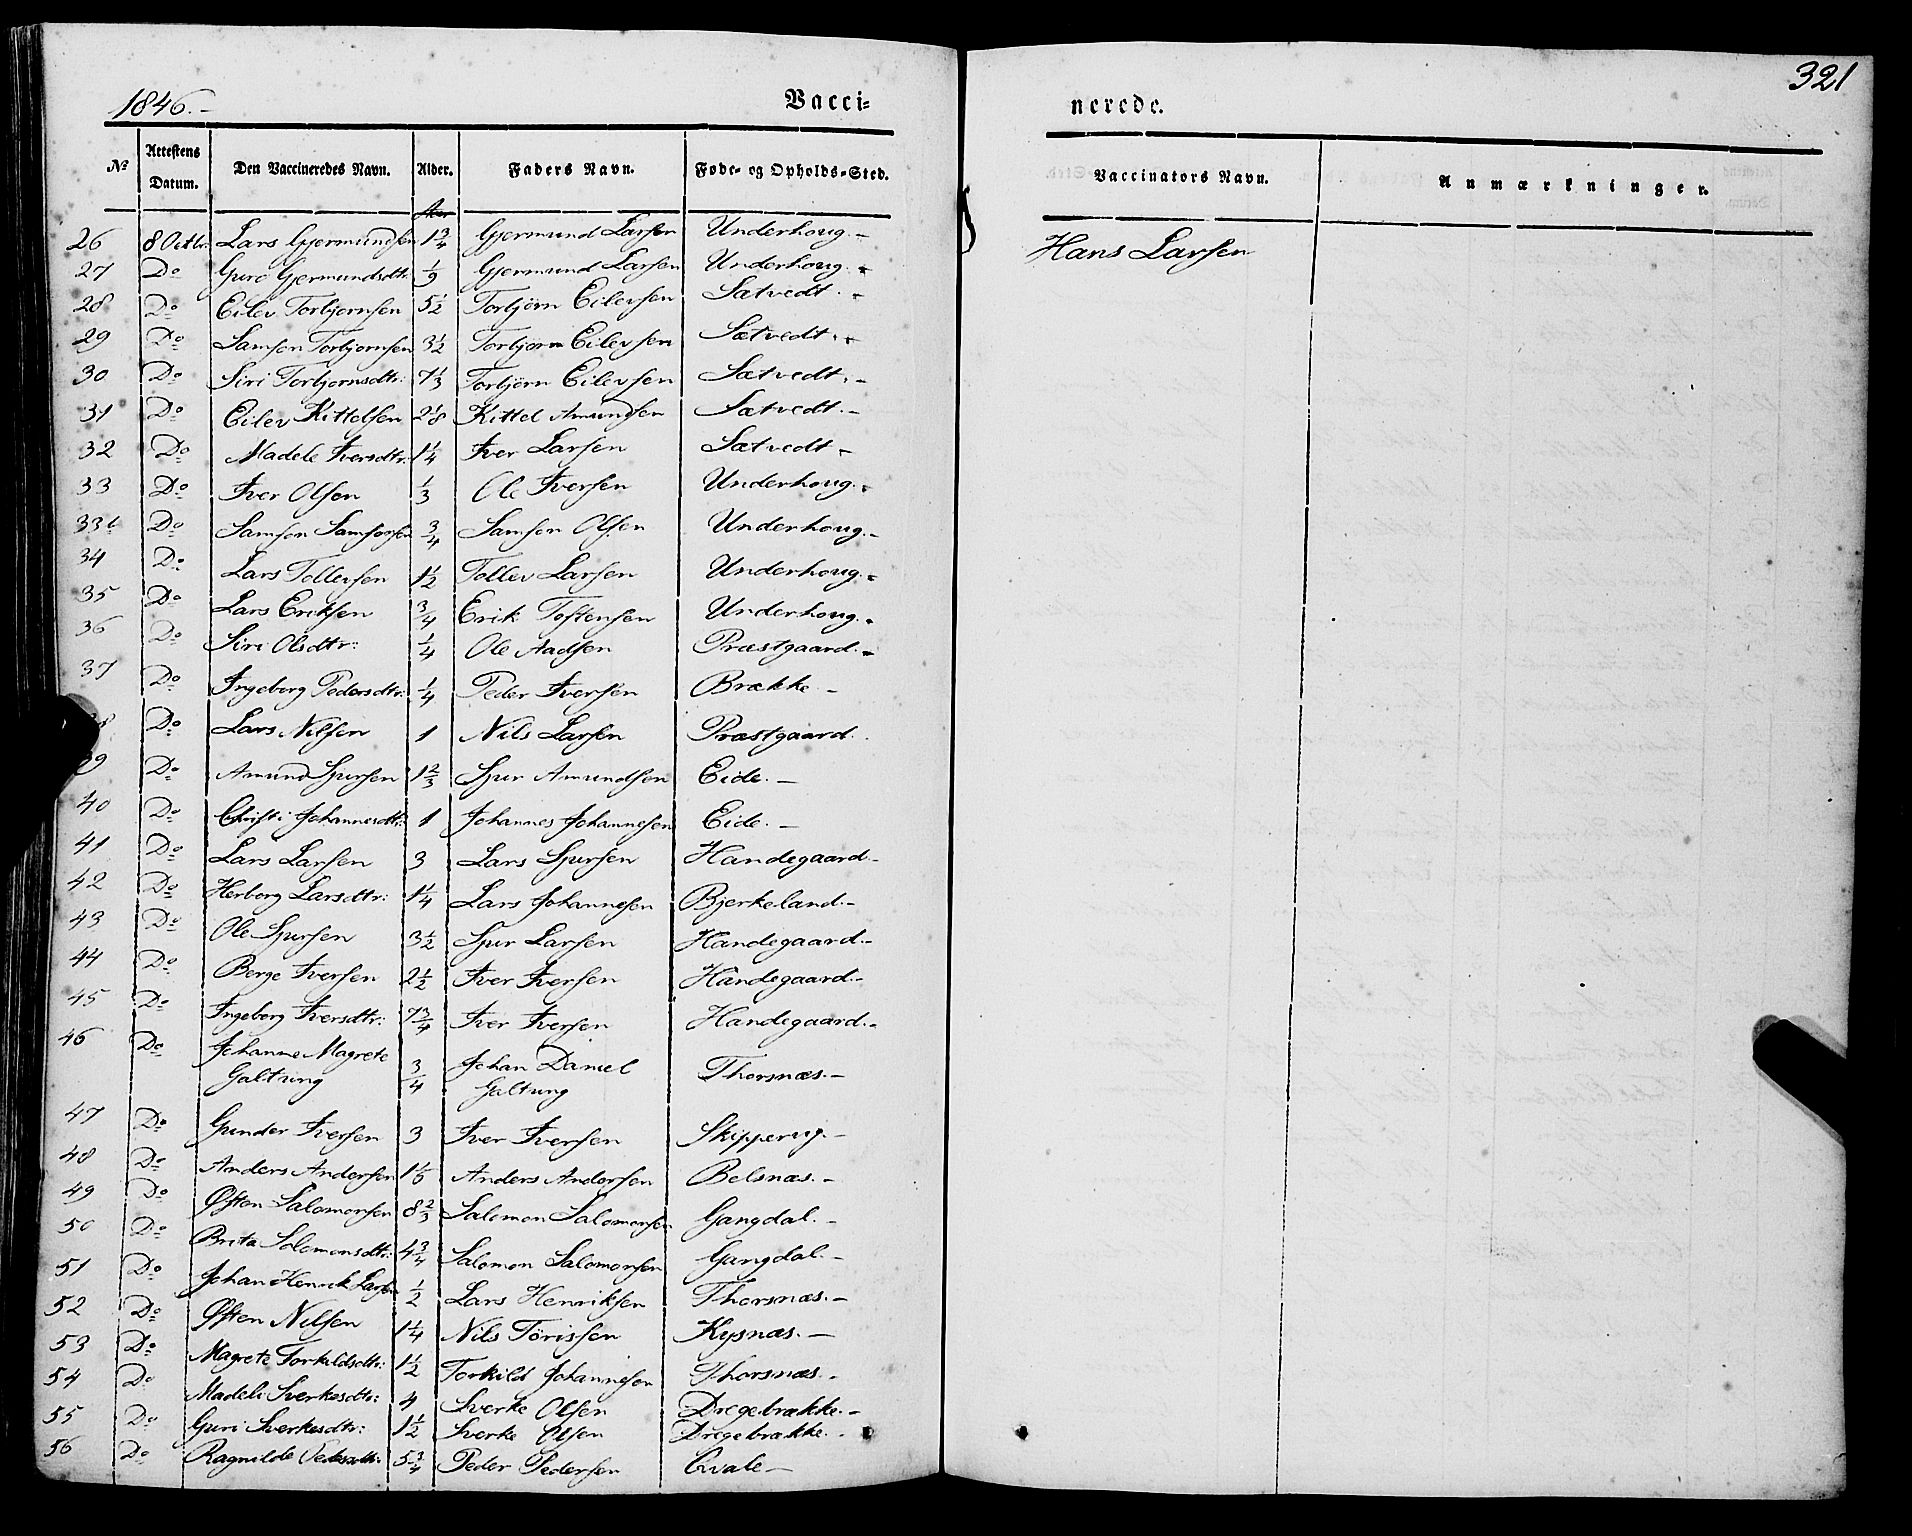 1846.-
Vacci=
nerede.
321
No
Attestens Datum.
Den Vaccineredes Navn.
Alder.
Faders Navn.
Føde- og Opholds-Sted.
Vaccinators Navn.
Anmærkninger.
Aar
26 8 Octbr. Lars Gjermundsen 1 3/4 Gjermund Larsen Underhoug.- Hans Larsen
27 Do Guro Gjermundsdtr: 1/9 Gjermund Larsen Underhoug.-
28 Do Eilev Torbjørnsen 5 1/2 Torbjørn Eilevsen Sætvedt.-
29 Do Samson Torbjørnsen 3 1/2 Torbjørn Eilevsen Sætvedt.-
30 Do Siri Torbjornsdtr: 7 1/3 Torbjørn Eilevsen Sætvedt.-
31 Do Eilev Kittelsen 2 1/8 Kittel Amundsen Sætvedt.-
32 Do Madele Iversdtr: 1 1/4 Iver Larsen Sætvedt-
33 Do Iver Olsen 1/3 Ole Iversen Underhoug.-
33b Do Samson Samsonsen 3/4 Samson Olsen Underhoug.-
34 Do Lars Tollevsen 1 1/2 Tollev Larsen Underhoug.-
35 Do Lars Eriksen 3/4 Erik Tostensen Underhoug.-
36 Do Siri Olsdtr: 1/4 Ole Aadsen Præstgaard.-
37 Do Ingeborg Pedersdtr: 1/4 Peder Iversen Brække.-
38 Do Lars Nilsen 1 Nils Larsen Præstgaard.
39 Do Amund Spursen 1 2/3 Spur Amundsen Eide.-
40 Do Christi Johannesdtr: 1 Johannes Johannesen Eide.-
41 Do Lars Larsen 3 Lars Spursen Handegaard.-
42 Do Herborg Larsdtr: 1 1/4 Lars Johannesen Bjerkeland.-
43 Do Ole Spursen 3 1/2 Spur Larsen Handegaard.-
44 Do Berge Iversen 2 1/2 Iver Iversen Handegaard.-
45 Do Ingeborg Iversdtr: 7 3/4 Iver Iversen Handegaard.-
46 Do Johanne Magrete 3/4 Johan Daniel Thorsnæs.-
Galtung Galtung
47 Do Gunder Iversen 3 Iver Iversen Skipperug.-
48 Do Anders Andersen 1 1/5 Anders Andersen Belsnæs.-
49 Do Østen Salomonsen 8 2/3 Salomon Salomonsen Gangdal.-
50 Do Brita Salomonsdtr: 4 3/4 Salomon Salomonsen Gangdal.-
51 Do Johan Henrik Larsen 1/2 Lars Henriksen Thorsnæs.-
52 Do Østen Nilsen 1 1/4 Nils Tørissen Kysnæs.-
53 Do Magrete Torkildsdtr: 1 1/2 Torkild Johannesen Thorsnæs.-
54 Do Madeli Sverkesdtr: 4 Sverke Olsen Dregebrække.-
55 Do Guri Sverkesdtr: 1 1/2 Sverke Olsen Dregebrække.-
56 Do Ragnilde Pedersdtr: 5 3/4 Peder Pedersen Qvale-